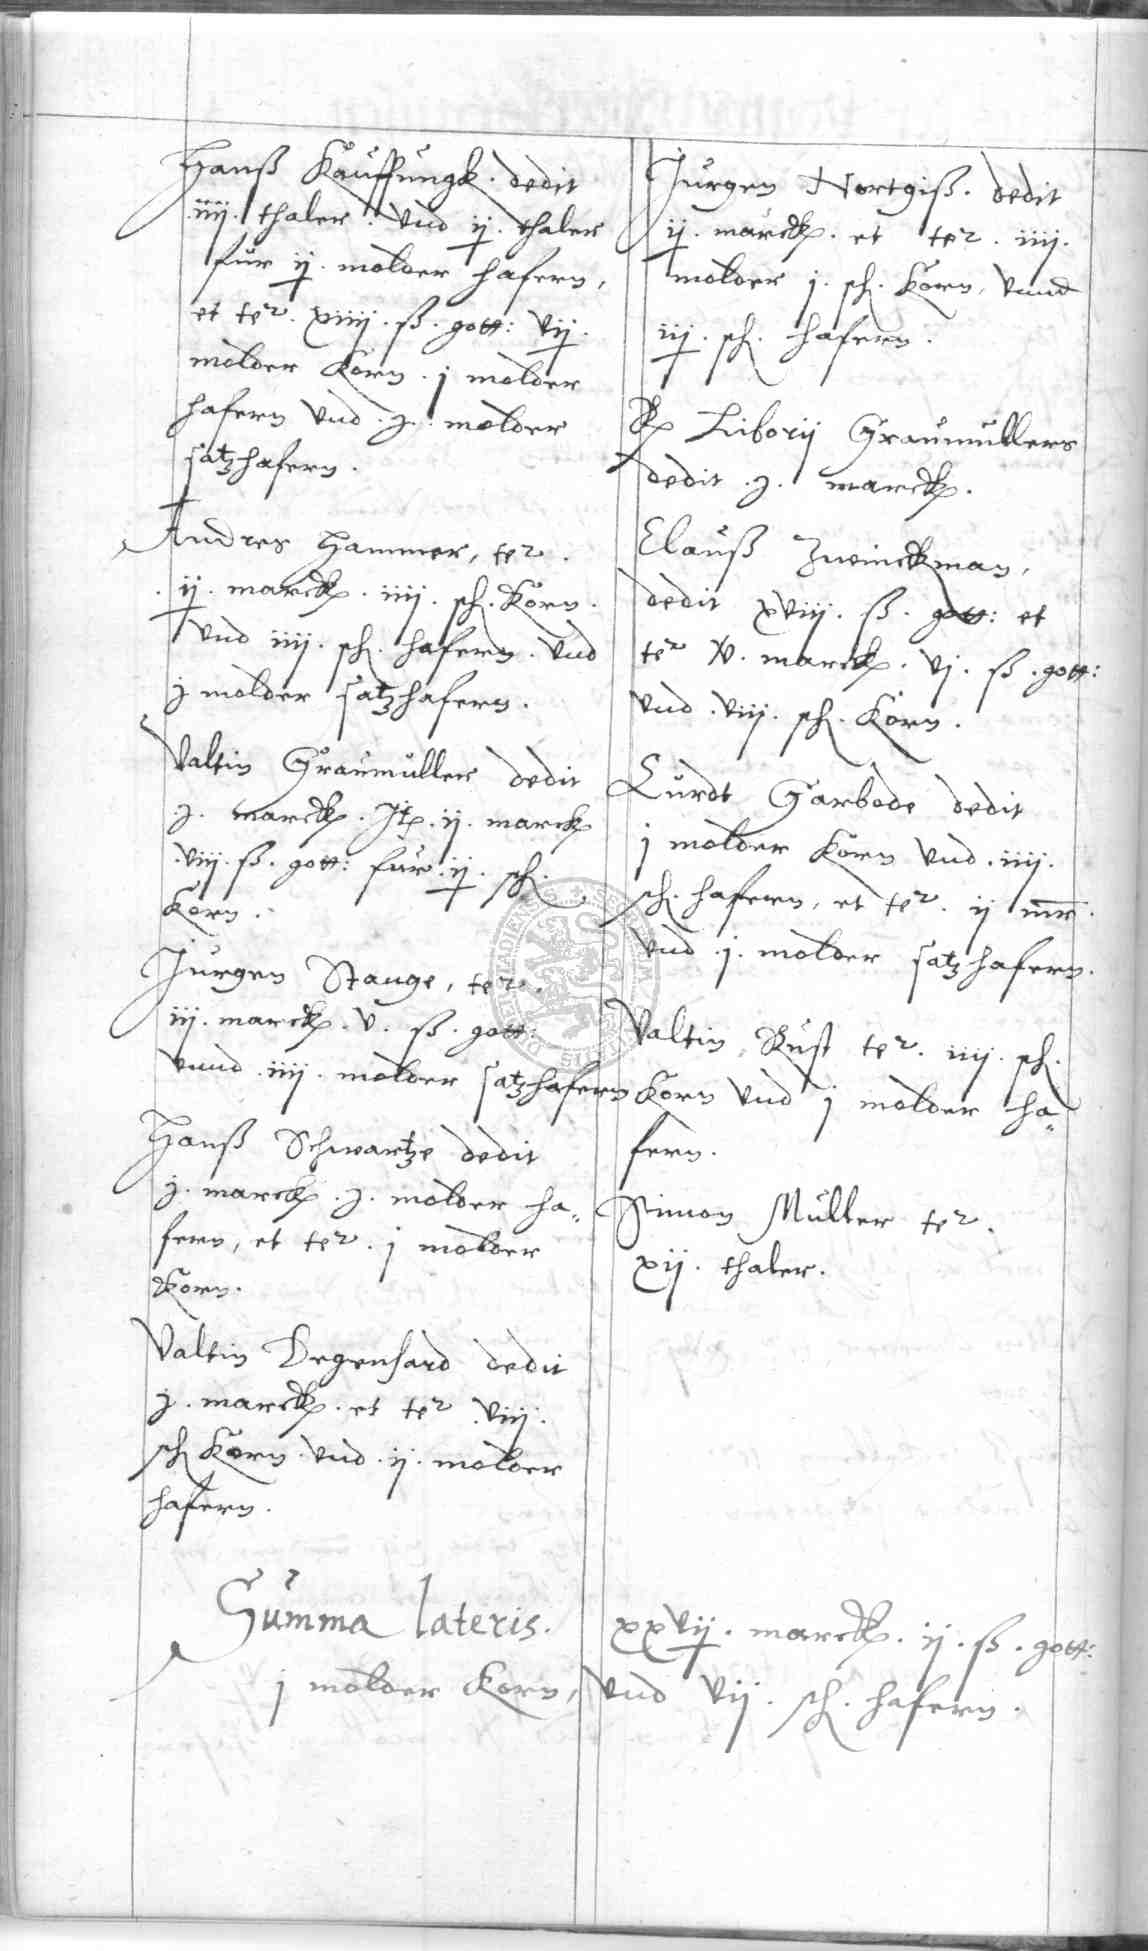 Hanß Kauffungk. dedit
iiij. thaler. Vnd ij. thaler
für ij. molder hafern,
et te2. xiiij. ß. gott: vij.
molder Korn. j molder
hafern Vnd. j. molder
satzhafern.
Andres Hammer, te2.
ij. marck. iiij. sch. Korn.
Vnd iiij. sch. hafern. Vnd
j molder satzhafern.
Valtin Graumüller dedit
j. marck. Jt. ij. marck
viij. ß. gott: für ij. sch.
Korn.
Jurgen Stange, te2.
iij. marck. v. ß. gott:
Vnnd iiij. molder satzhafern
Hanß Schwartze dedit
j. marck. j. molder ha„
fern, et te2. j molder
Korn.
Valtin Degenhard dedit
j. marck. et te2 viij.
sch Korn. Vnd. ij. molder
hafern.
Jurgen Nortgiß. dedit
ij. marck. et te2. iiij.
molder j. sch. Korn, Vnnd
iij. sch. hafern.
Liborij Graumüllers
dedit j. marck.
Clauß Zwinckman,
dedit xviij. ß. gott: et
te2 v. marck. vj. ß. gott:
Vnd. viij. sch. Korn.
Curdt Garbode dedit
j molder Korn Vnd. iiij.
sch. hafern, et te2. ij mr.
Vnd. j. molder satzhafern.
Valtin Rust te2. iiij. sch.
Korn Vnd j molder ha„
fern.
Simon Müller te2.
xij. thaler.
Summa lateris. xxvij. marck. ij. ß. gott:
j molder Korn, Vnd vij. sch. hafern.